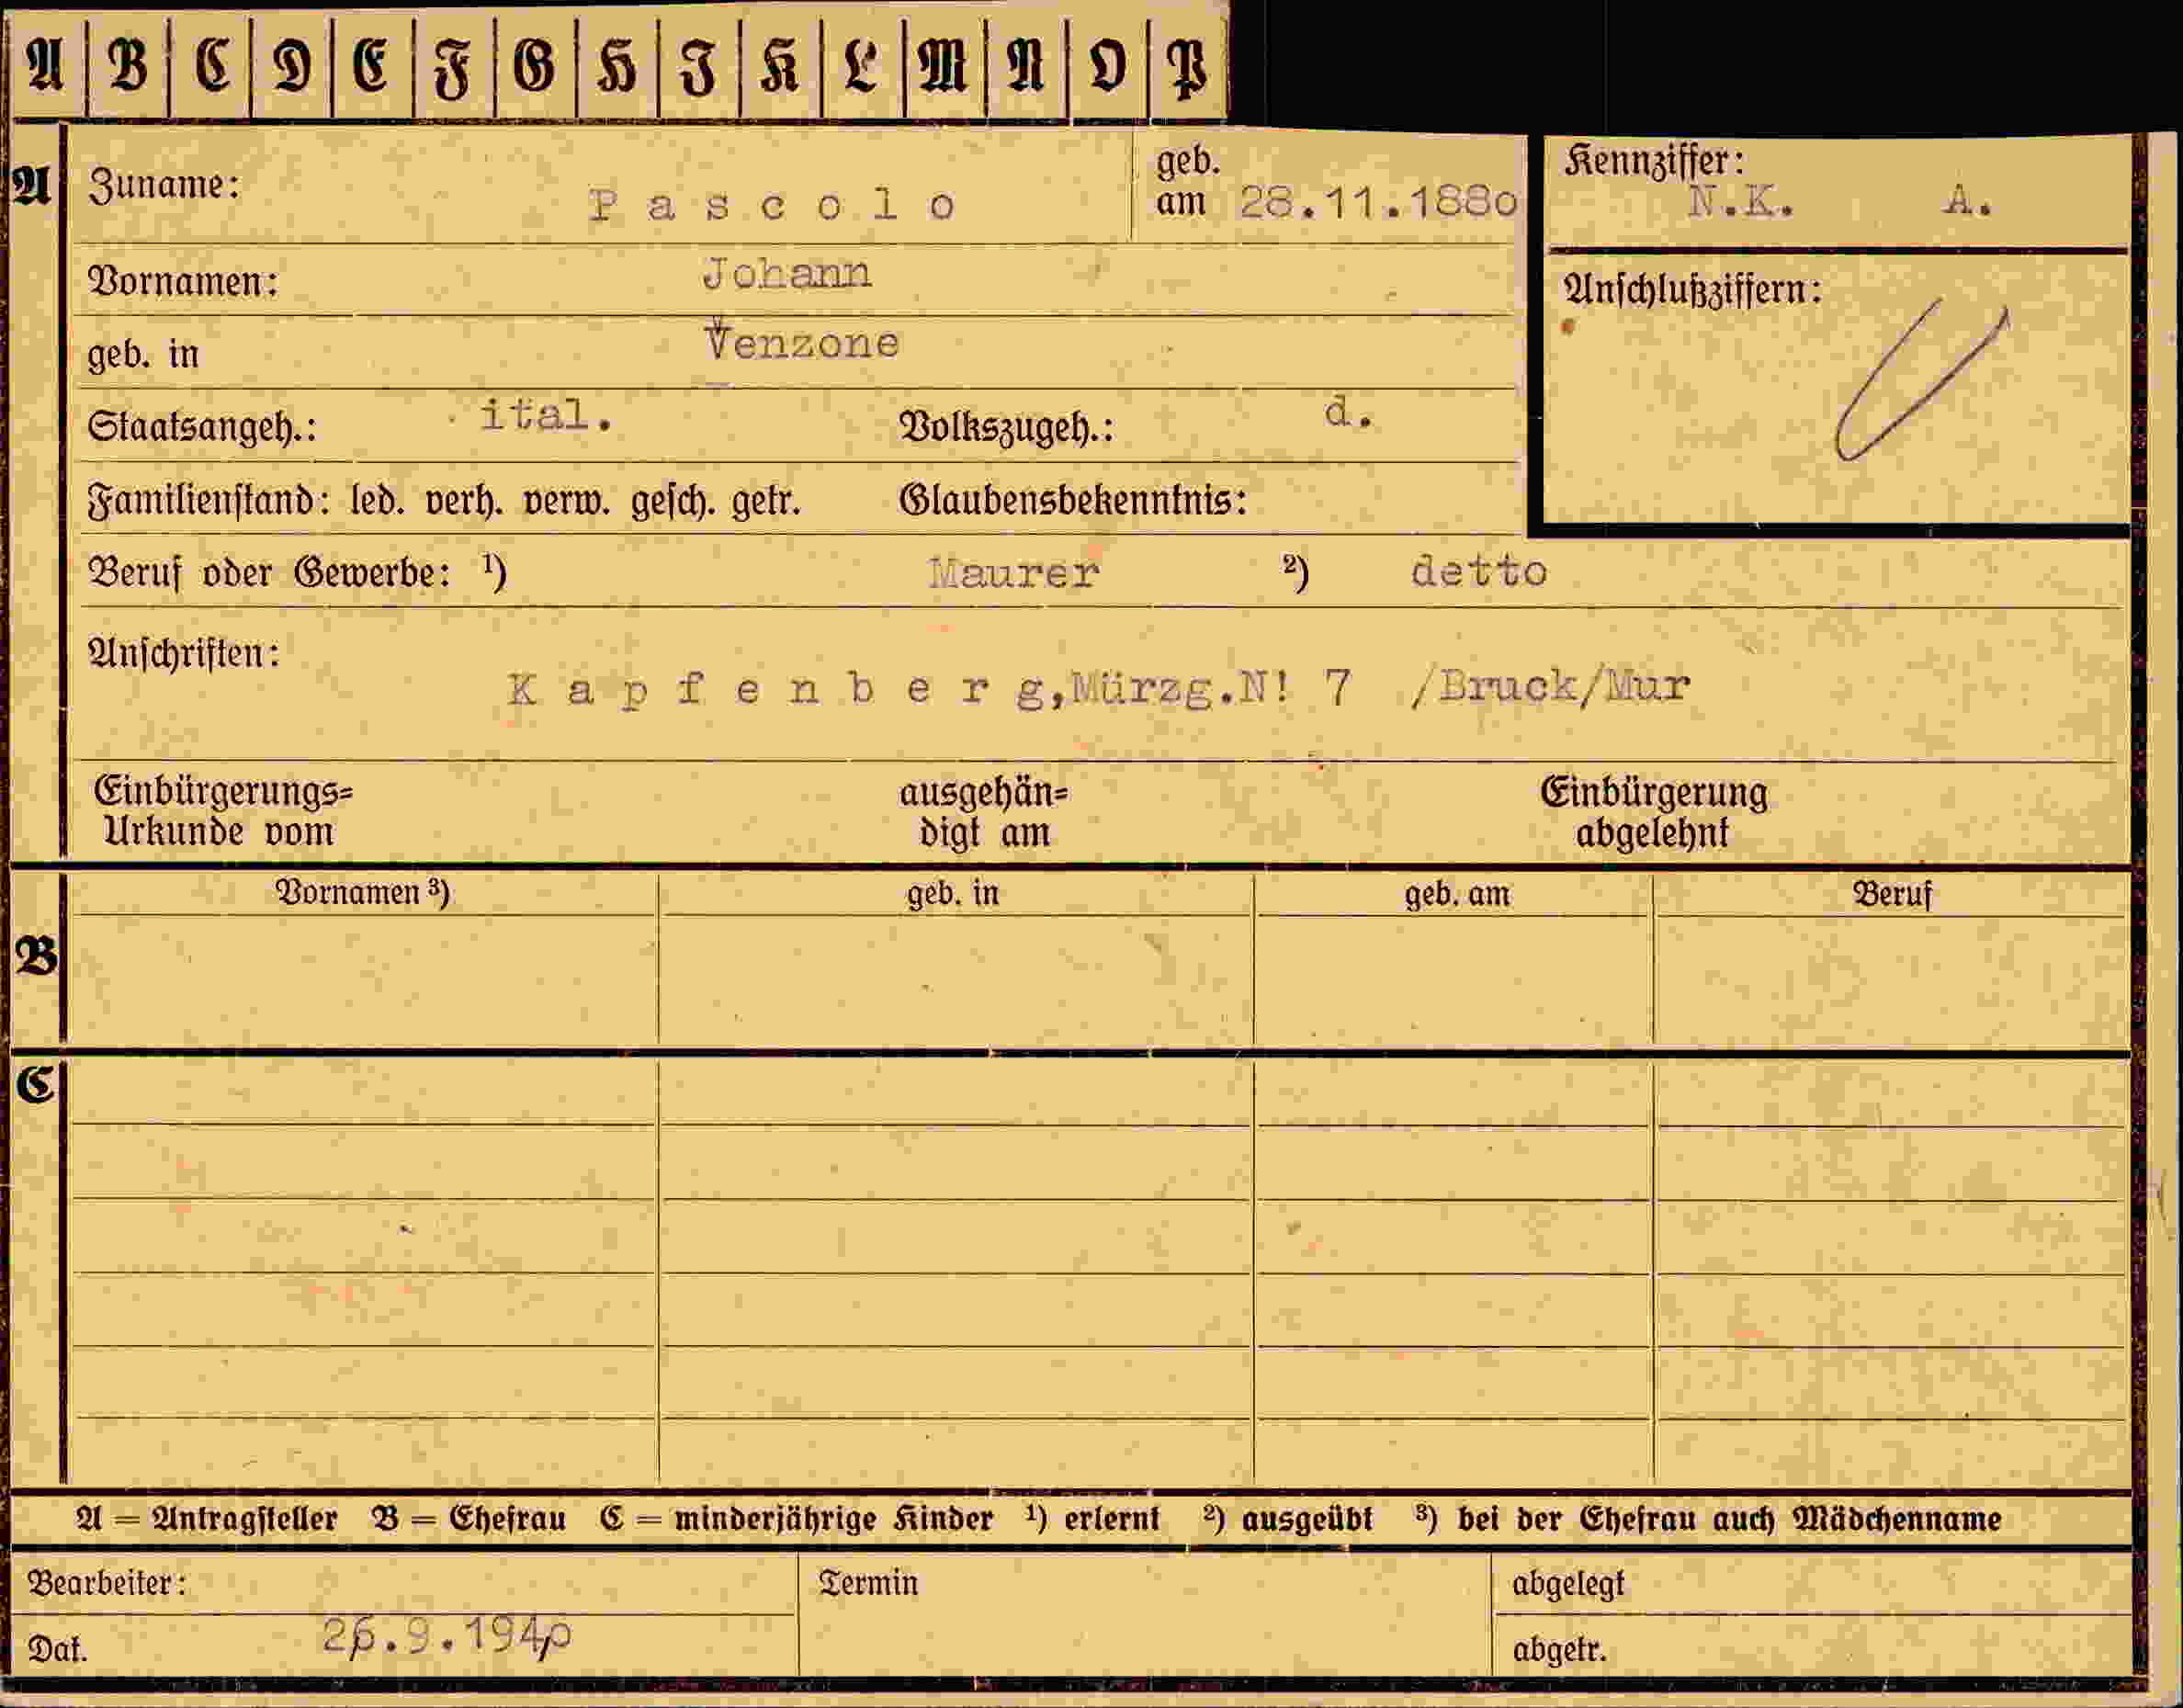 A B C D E F G H I K L M N O P
A Zuname: Pascolo geb. am 28.11.1880 Kennziffer: N.K. A.
Vornamen: Johann
Anschlußziffern:
geb. in Venzone
Staatsangeh.: ital. Volkszugeh.: d.
Familienstand: led. verh. verw. gesch. getr. Glaubensbekenntnis:
Beruf oder Gewerbe: ¹) Maurer ²) detto
Anschriften:
Kapfenberg,Mürzg.N! 7 /Bruck/Mur
Einbürgerungs= ausgehän= Einbürgerung
Urkunde vom digt am abgelehnt
Vornamen ³) geb. in geb. am Beruf
B
C
A = Antragsteller B = Ehefrau C = minderjährige Kinder ¹) erlernt ²) ausgeübt ³) bei der Ehefrau auch Mädchenname
Bearbeiter: Termin abgelegt
Dat. 26.9.1940 abgetr.